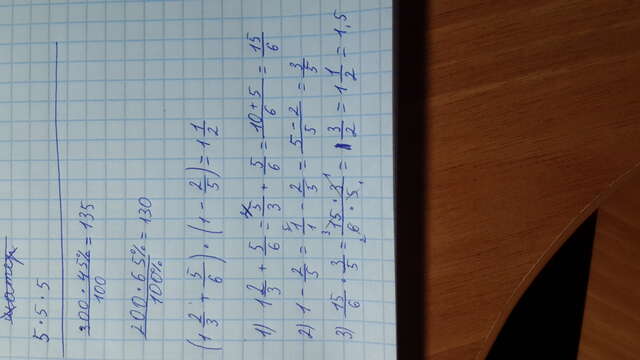 5 · 5 · 5
300 · 45% / 100 = 135
200 · 65% / 100% = 130
(1 2/3 + 5/6) · (1 - 2/5) = 1 1/2
1) 1 2/3 + 5/6 = 5/3 + 5/6 = 10 + 5 / 6 = 15/6
2) 1 - 2/5 = 1/1 - 2/5 = 5 - 2 / 5 = 3/5
3) 15/6 · 3/5 = 15 · 3 / 6 · 5 = 3/2 = 1 1/2 = 1,5